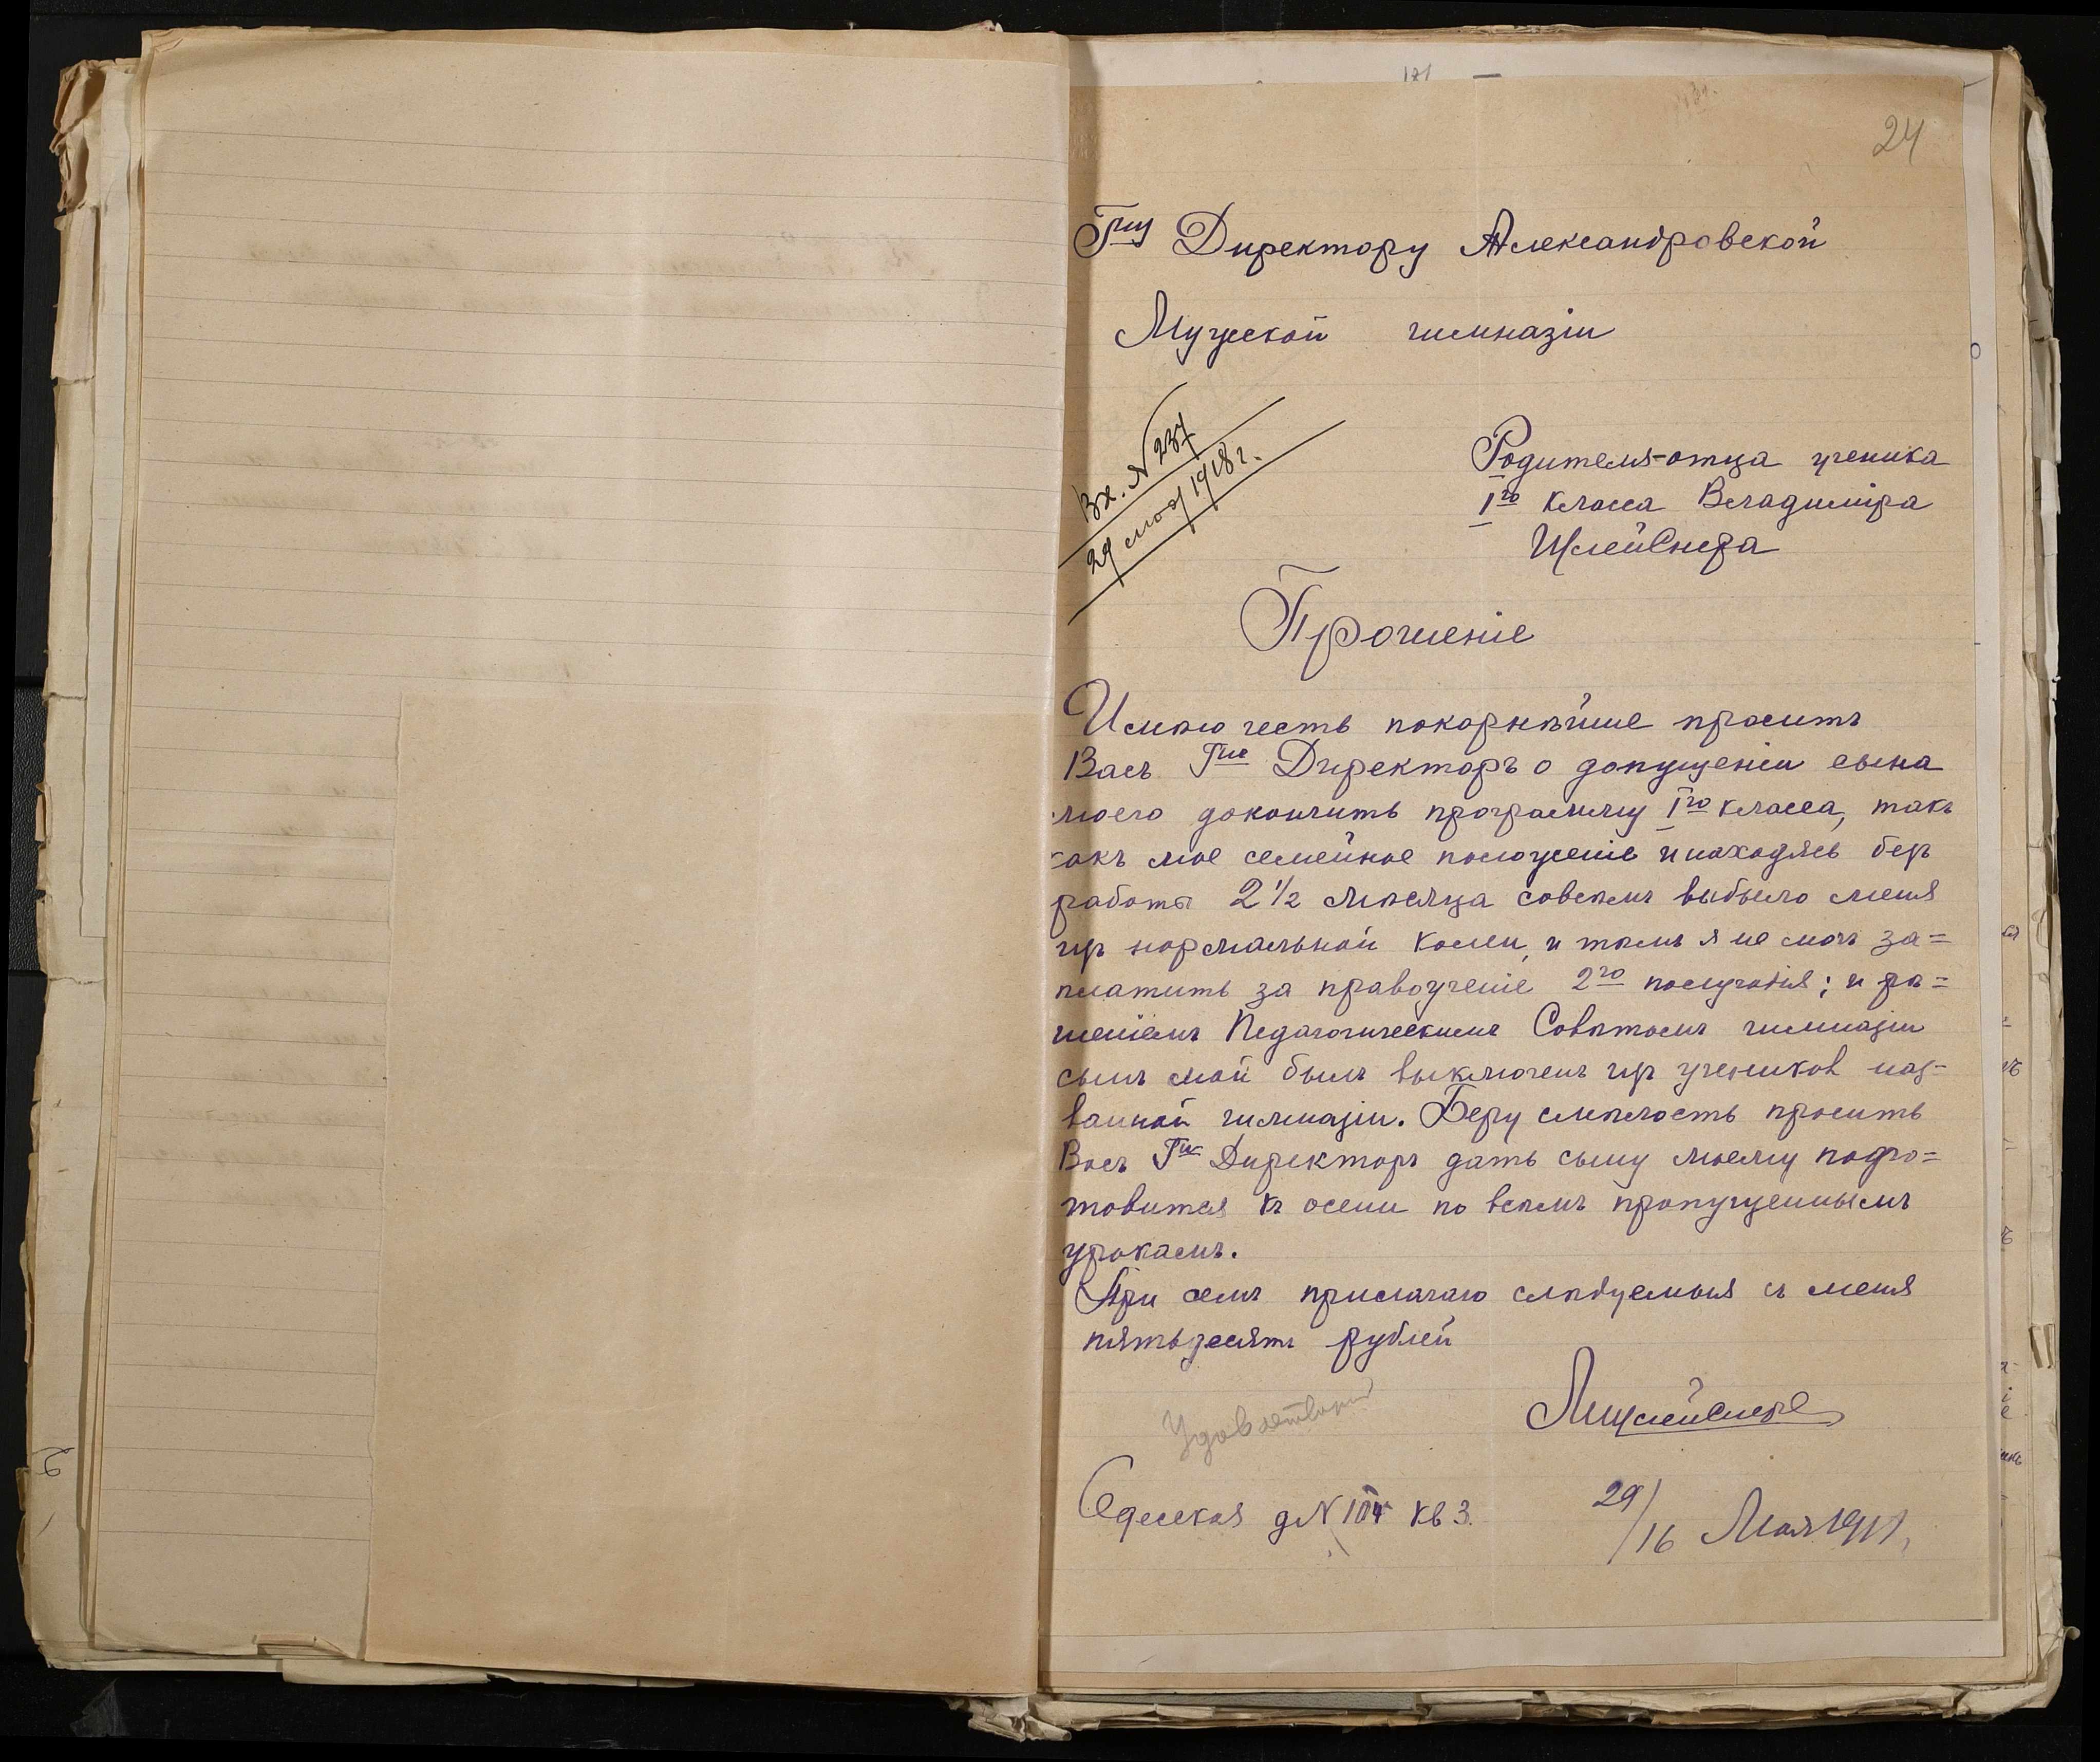 24
Гну Директору Александровской
Мужской гимназіи
Вх. № 237
29 мая 1918 г.
Родителя-отца ученика
Iго класса Владиміра
Шлейснера
Прошеніе
Имѣю честь покорнѣйше просить
Васъ Гне Директоръ о допущеніи сына
моего докончить программу Iго класса, такъ
какъ мое семейное положеніе и находясь безъ
работы 2 1/2 мѣсяца совсѣмъ выбыло меня
изъ нормальной колеи, и тѣмъ я не могъ за=
платить за правоученіе 2го полугодія; и рѣ=
шеніемъ Педагогическимъ Совѣтомъ гимназіи
сынъ мой былъ выключенъ изъ учеников наз-
ванной гимназіи. Беру смѣлость просить
Васъ Гне Директоръ дать сыну моему подго=
товится къ осени по всѣмъ пропущеннымъ
урокамъ.
При семъ прилагаю слѣдуемыя съ меня
пятьдесятъ рублей
Одесская д № 104 кв 3.
29/16 Мая